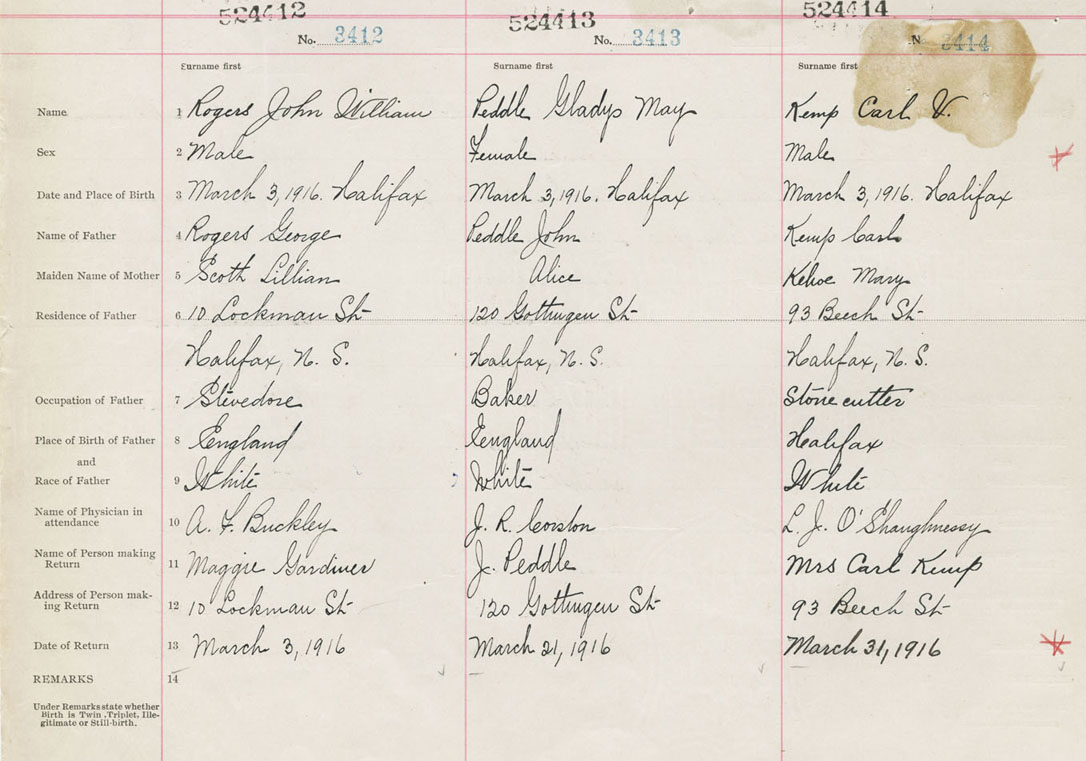 524412 524413 524414
No. 3412 No. 3413 N 3414
Surname first Surname first Surname first
Name 1 Rogers John William Peddle Gladys May Kemp Carl V.
Sex 2 Male Female Male
Date and Place of Birth 3 March 3, 1916. Halifax March 3, 1916. Halifax March 3, 1916. Halifax
Name of Father 4 Rogers George Peddle John Kemp Carl
Maiden Name of Mother 5 Scott Lillian Alice Kehoe Mary
Residence of Father 6 10 Lockman St 120 Gottingen St 93 Beech St
Halifax, N. S. Halifax, N. S. Halifax, N. S.
Occupation of Father 7 Stevedore Baker Stone cutter
Place of Birth of Father 8 England England Halifax
and
Race of Father 9 White White White
Name of Physician in
attendance 10 A. F. Buckley J. R. Corston L. J. O'Shaughnessy
Name of Person making
Return 11 Maggie Gardiner J. Peddle Mrs Carl Kemp
Address of Person mak-
ing Return 12 10 Lockman St 120 Gottingen St 93 Beech St
Date of Return 13 March 3, 1916 March 21, 1916 March 31, 1916
REMARKS 14
Under Remarks state whether
Birth is Twin, Triplet, Ille-
gitimate or Still-birth.